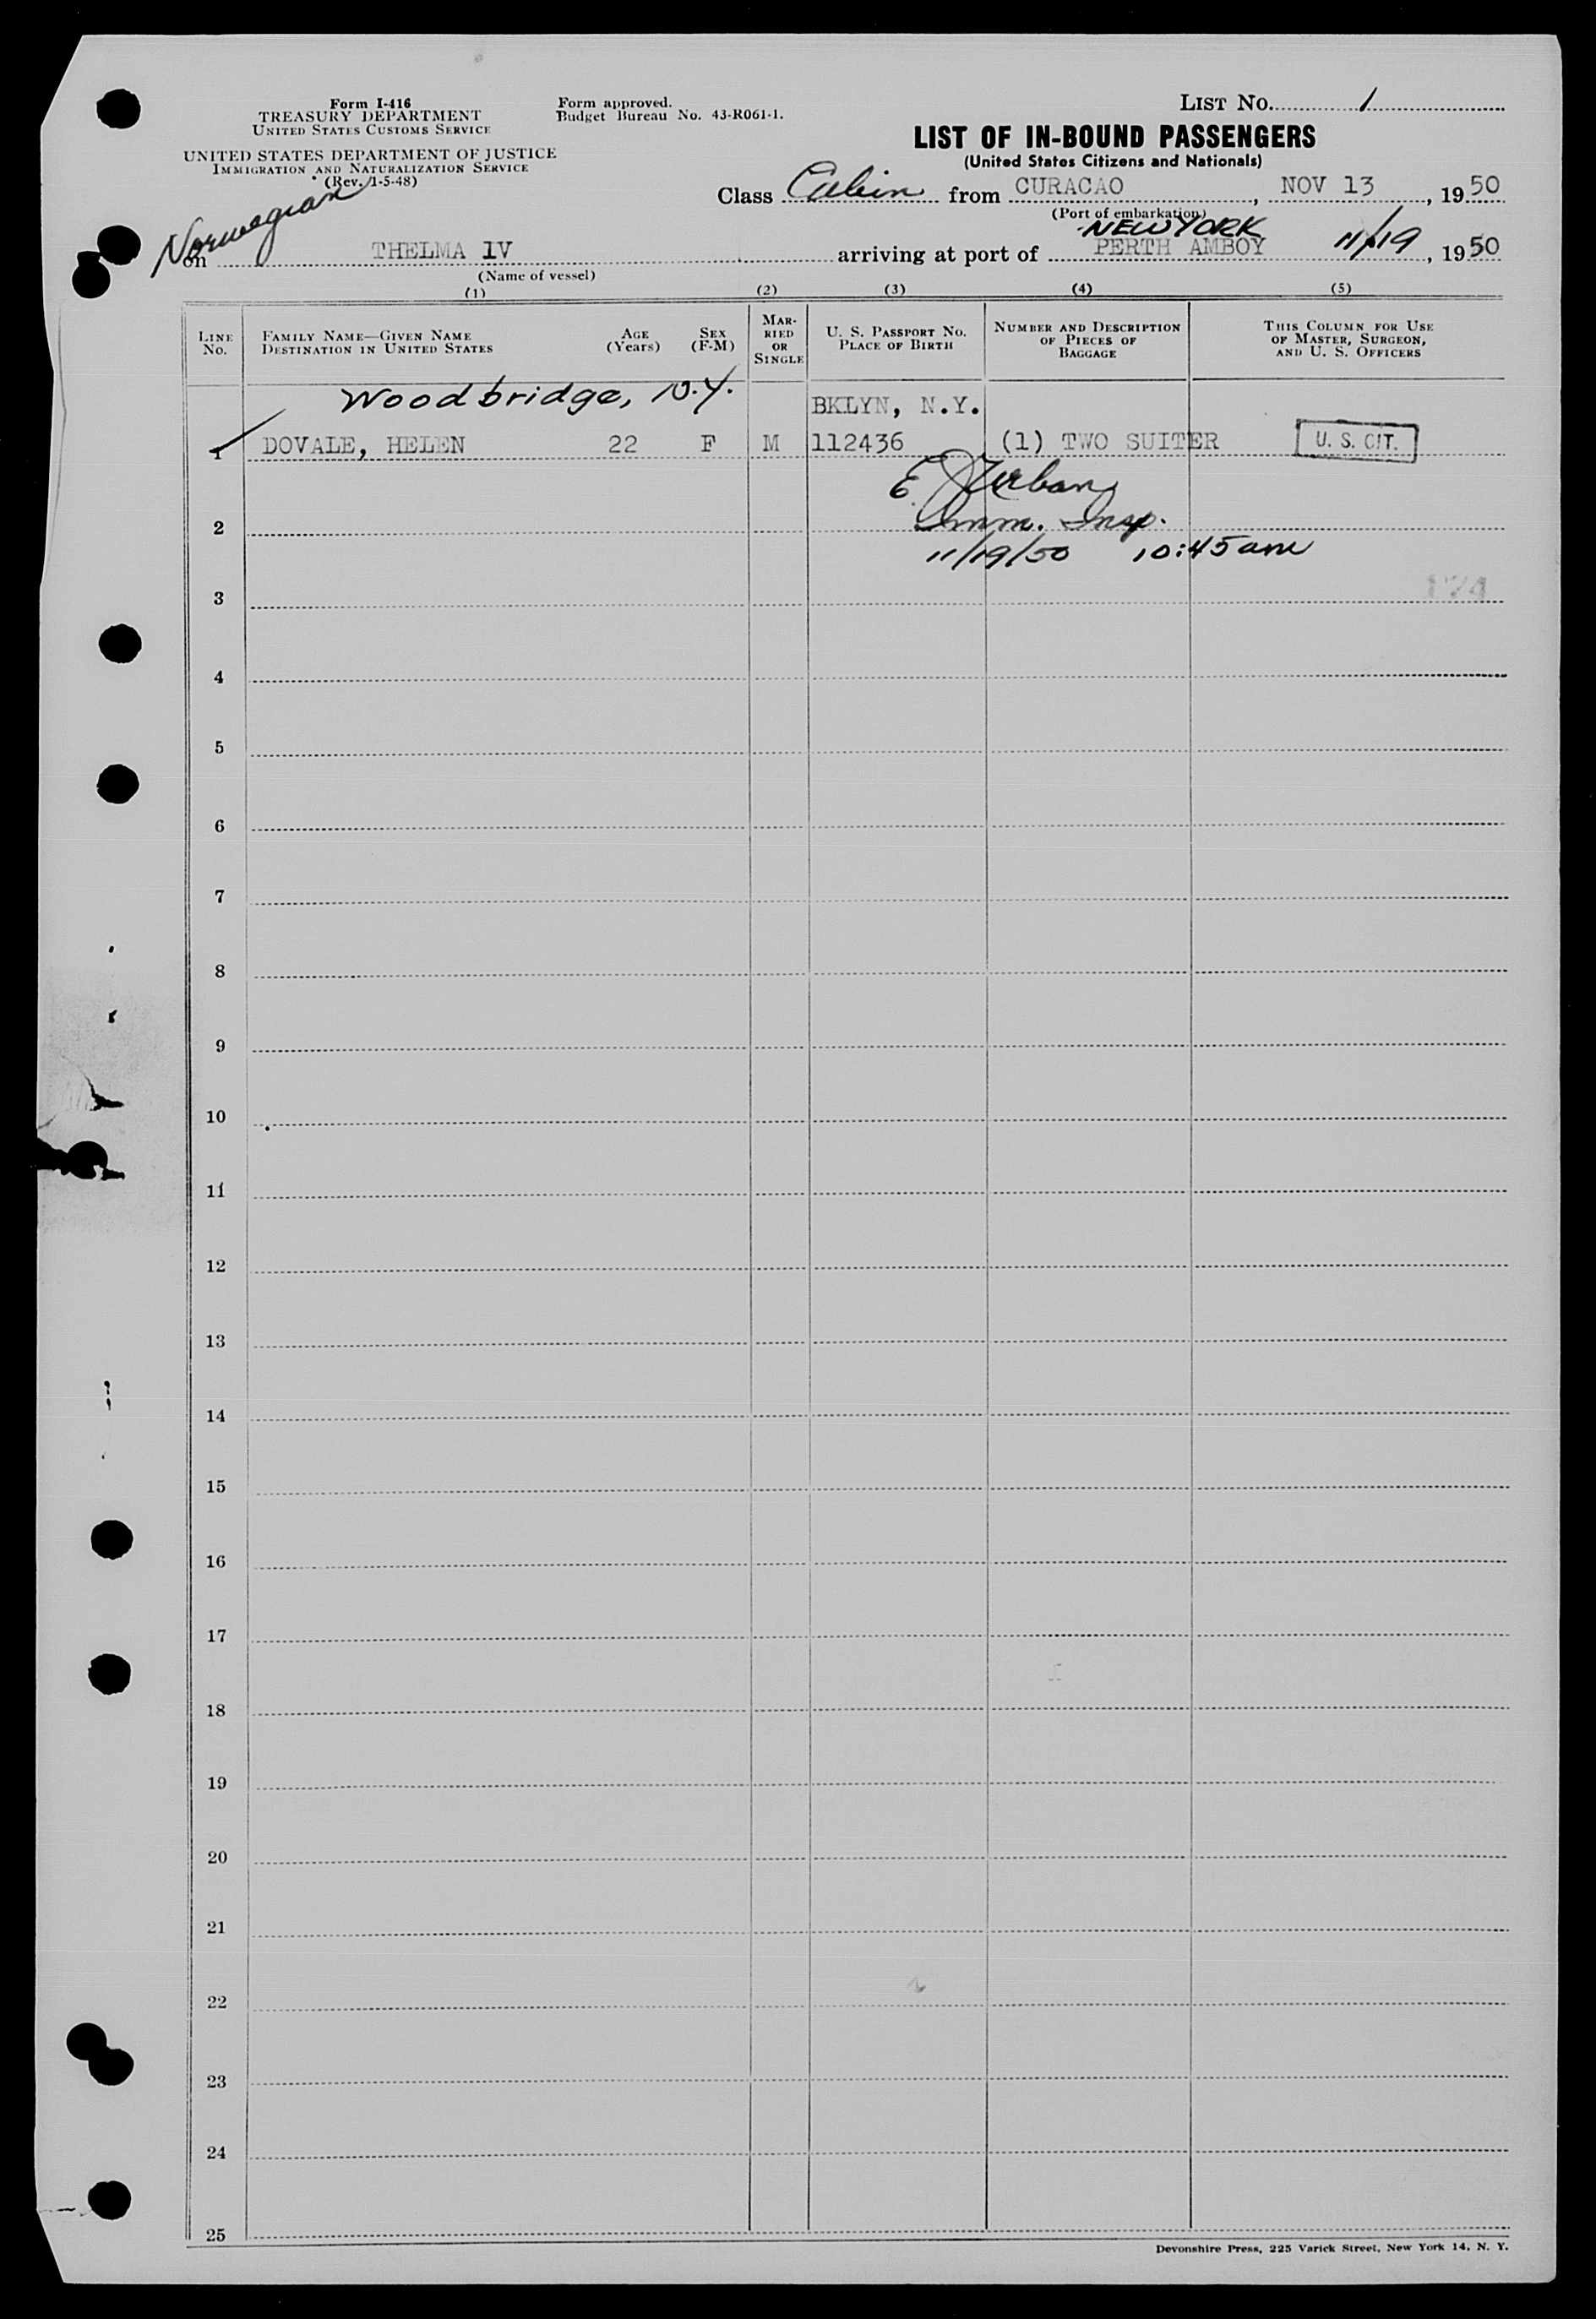 Form I-416
TREASURY DEPARTMENT
UNITED STATES CUSTOMS SERVICE
UNITED STATES DEPARTMENT OF JUSTICE
IMMIGRATION AND NATURALIZATION SERVICE
(Rev. 1-5-48)
Form approved.
Budget Bureau No. 43-R061-1.
LIST NO. 1
LIST OF IN-BOUND PASSENGERS
(United States Citizens and Nationals)
Class Cabin from CURACAO, NOV 13, 1950
(Port of embarkation)
Norwegian
NEW YORK
on THELMA 1V arriving at port of PERTH AMBOY 11/19, 1950
(Name of vessel)
(1) (2) (3) (4) (5)
LINE NO.
FAMILY NAME—GIVEN NAME
DESTINATION IN UNITED STATES
AGE (Years)
SEX (F-M)
MARRIED OR SINGLE
U. S. PASSPORT NO.
PLACE OF BIRTH
NUMBER AND DESCRIPTION OF PIECES OF BAGGAGE
THIS COLUMN FOR USE OF MASTER, SURGEON, AND U. S. OFFICERS
Woodbridge, N.Y.
BKLYN, N.Y.
1 DOVALE, HELEN 22 F M 112436 (1) TWO SUITER U. S. CIT.
E. J. Urban
Imm. Insp.
2
11/19/50 10:45 am
3
4
5
6
7
8
9
10
11
12
13
14
15
16
17
18
19
20
21
22
23
24
25
Devonshire Press, 225 Varick Street, New York 14, N. Y.